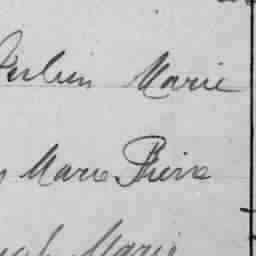 Julien Marie
Marie Pierre
Marie